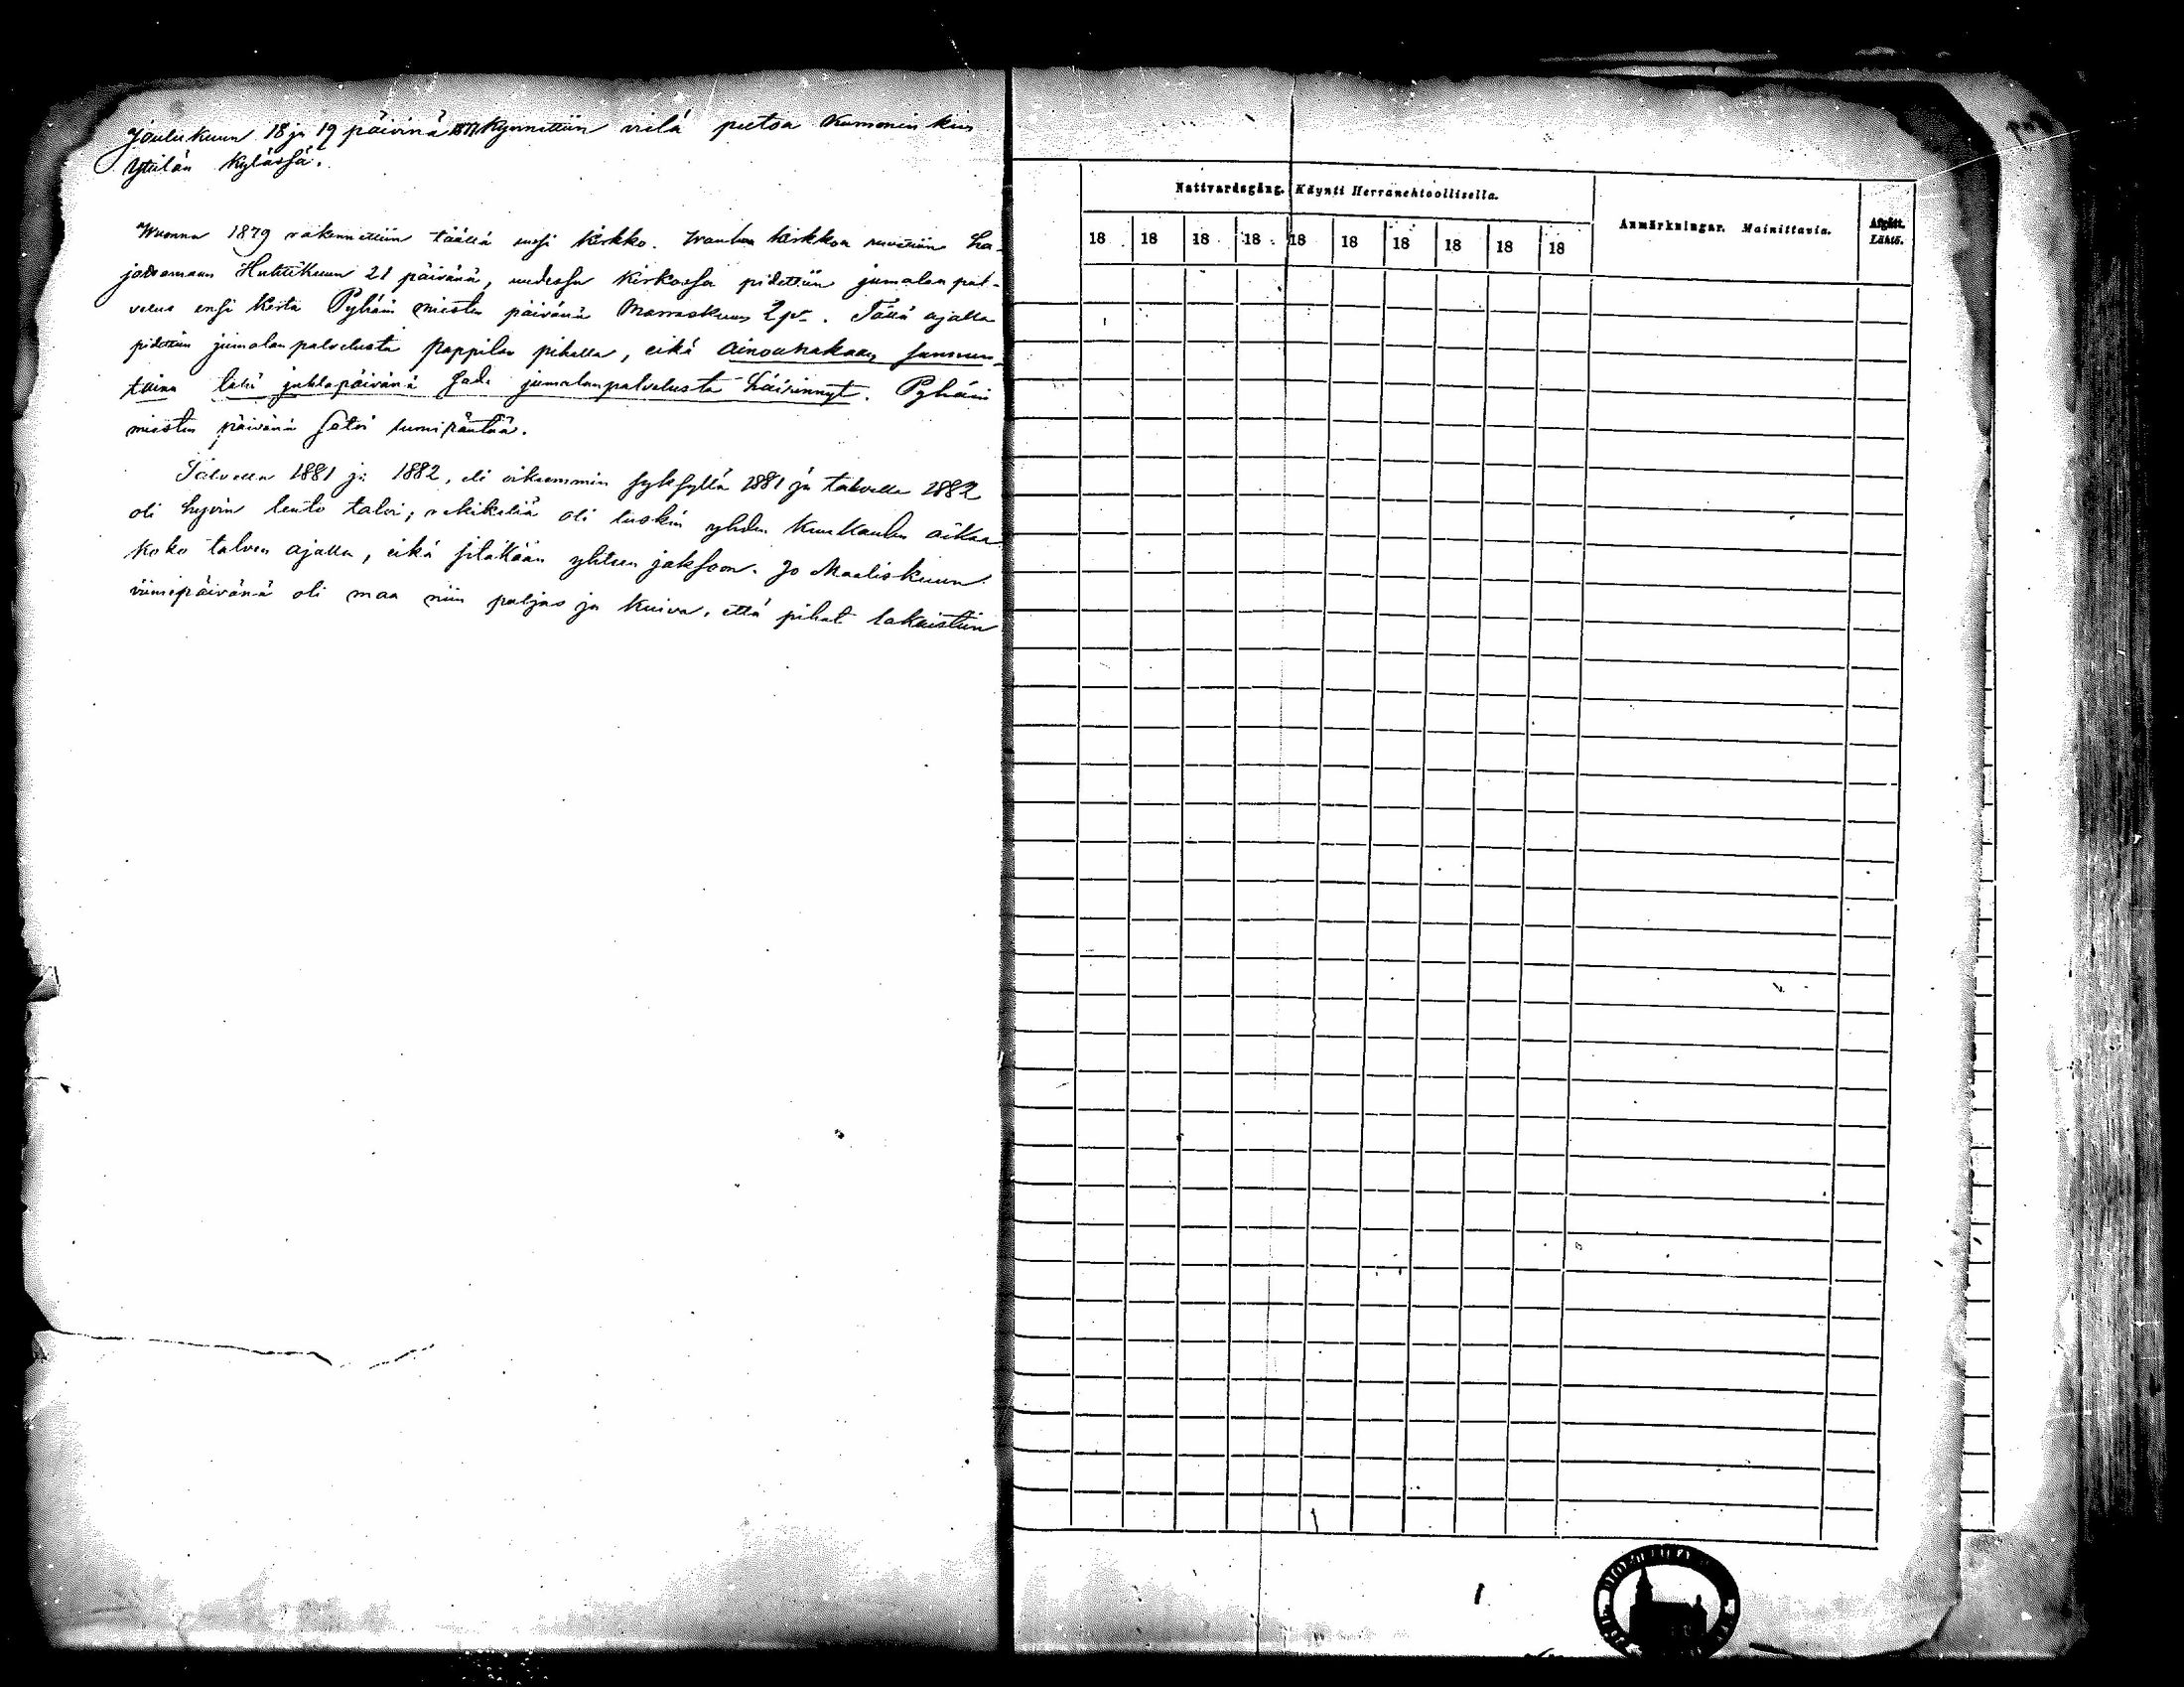 Joulukuun 18 ja 19 päivinä 1877 Kynnettiin vielä peltoa Kumonin kin
Yttilän Kylässä.
Wuonna 1879 rakennettiin täällä uusi kirkko. Wanhaa kirkkoa ruvettiin ha-
jottamaan Huhtikuun 21 päivänä, uudessa kirkossa pidettiin jumalan pal-
velus ensi kerta Pyhäin miesten päivänä Marraskuun 2 p. Tällä ajalla
pidettiin jumalan palvelusta Pappilan pihalla, eikä ainoanakaan sunnun-
taina tahi juhlapäivänä sade jumalanpalvelusta häirinnyt. Pyhäin
miesten päivänä satoi lumiräntää.
Talvella 1881 ja 1882, eli oikeammin syksyllä 1881 ja talvella 1882
oli hyvin leuto talvi; rekikeliä oli tuskin yhden Kuukauden aikaa
Koko talven ajalla, eikä sitäkään yhteen jaksoon. Jo Maaliskuun
viimepäivänä oli maa niin paljas ja Kuiva, että pihat lakaistiin
Nattvardsgång. Käynti Herranehtoollisella.
Anmärkningar. Mainittavia.
Afgått.
Lähtö.
18 18 18 18 18 18 18 18 18 18